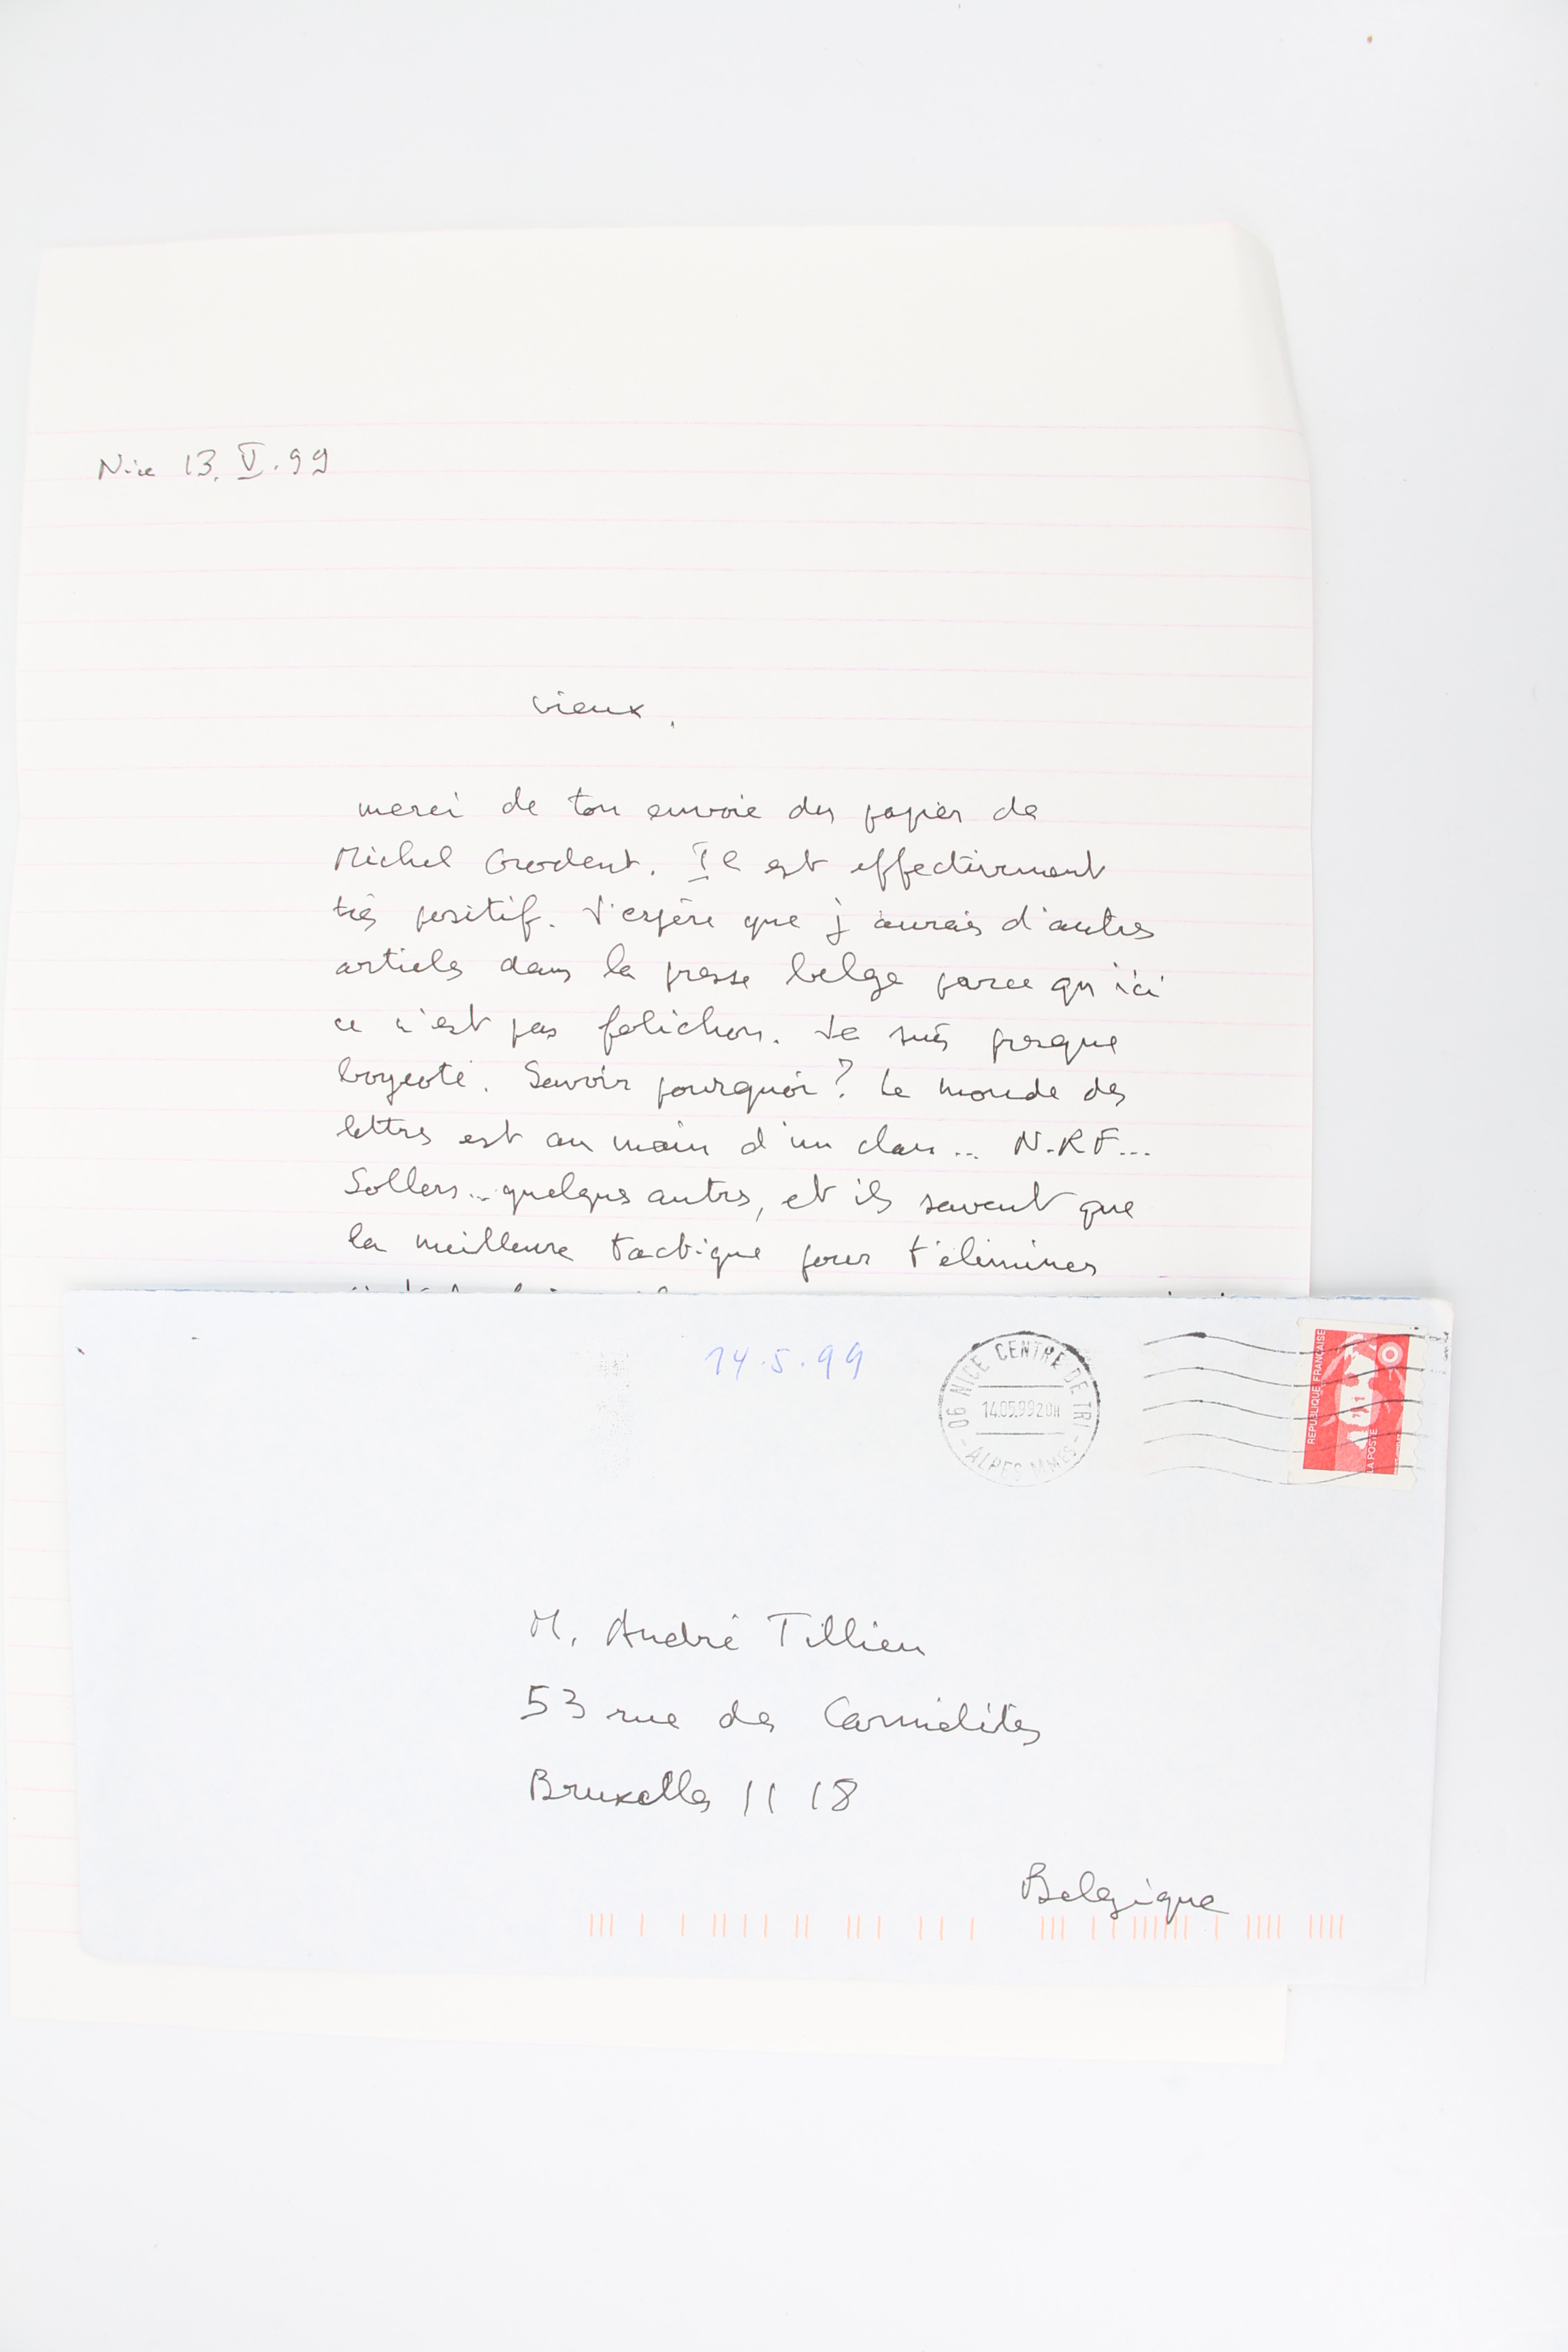 Nice 13. V. 99
vieux,
merci de ton envoie du papier de
Michel Grodent. Il est effectivement
très positif. J'espère que j'aurais d'autres
articles dans la presse belge parce qu'ici
ce n'est pas folichon. Je suis presque
boycoté. Savoir pourquoi? Le monde des
lettres est au main d'un clan... N.R.F...
Sollers... quelques autres, et ils savent que
la meilleure tactique pour t'éliminer
14.5.99
06 NICE CENTRE DE TRI
14.05.99 20H
ALPES MMES
REPUBLIQUE FRANÇAISE
LA POSTE
M. André Tillieu
53 rue des Carmélites
Bruxelles 11 18
Belgique